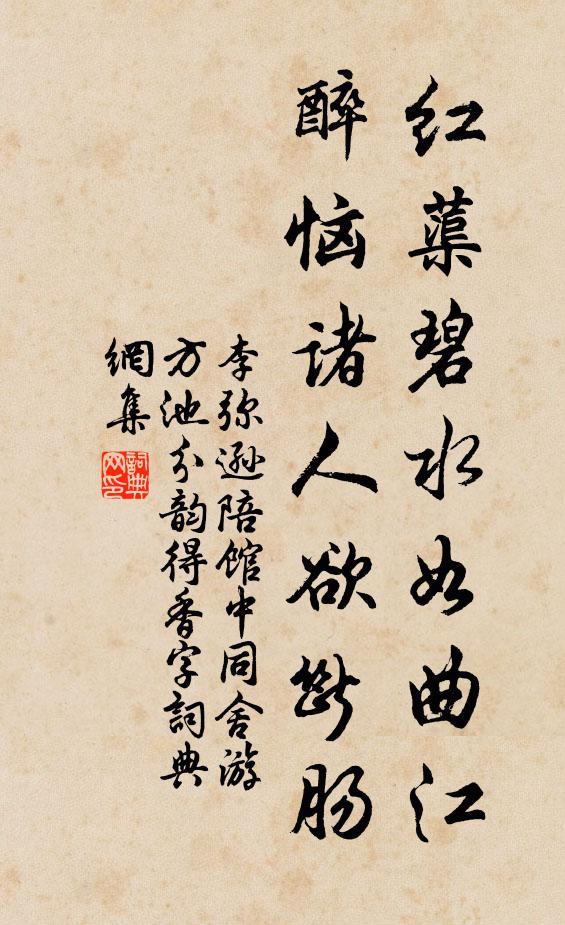 红蕖碧水如曲江
醉恼诸人欲断肠
李弥逊陪馆中同舍游
方池分韵得香字詞典
網集
詞典
网印